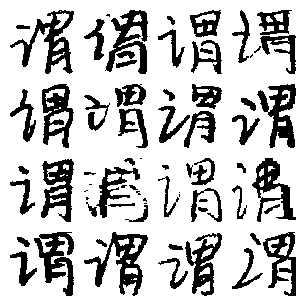 谓谓谓谓
谓谓谓谓
谓谓谓谓
谓谓谓谓